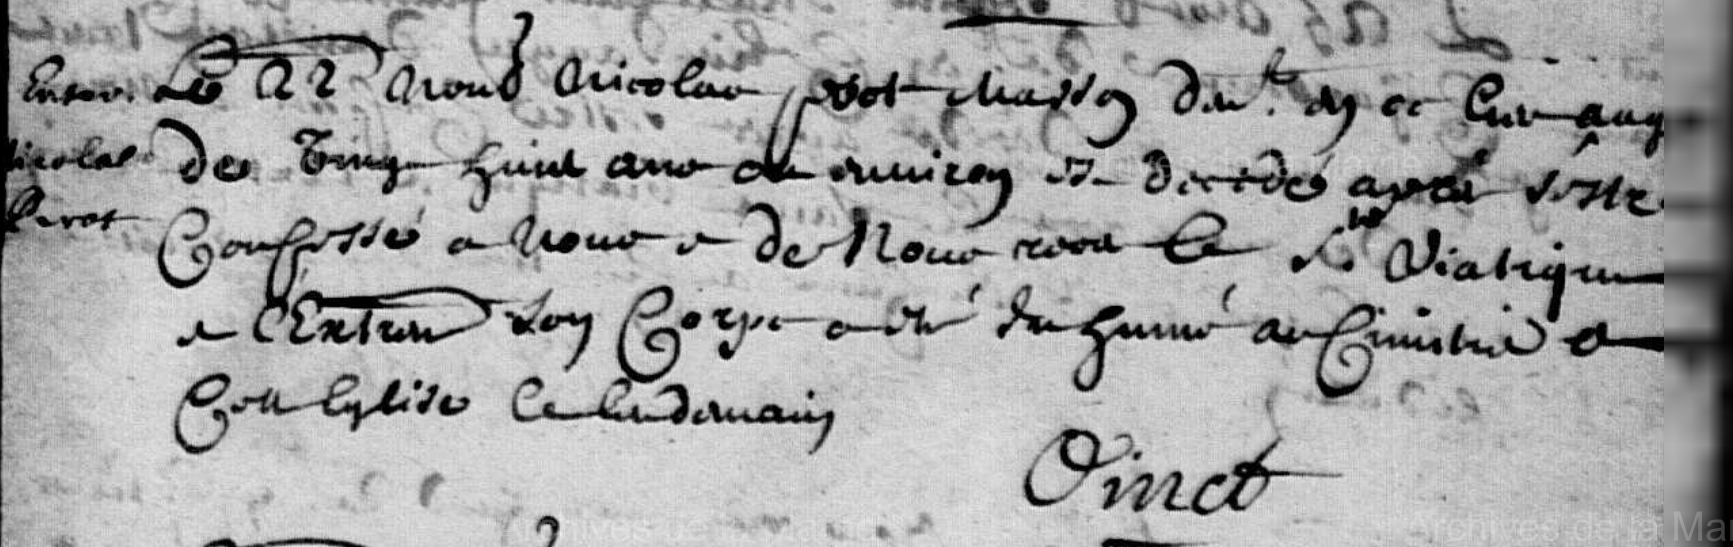 Enter. Le 22 Nicolas perot masson dem.t en ce lieu aag
Nicolas des Vingt huict ans ou environ est decedé apres s'estre
Perot Confessé a nous et de Nous receu le St Viatique
et l'Extr son Corps a été inhumé au Cimetiere de
Cette Eglise le lendemain
Oinct
Archives de la Ma
Archives de la Ma